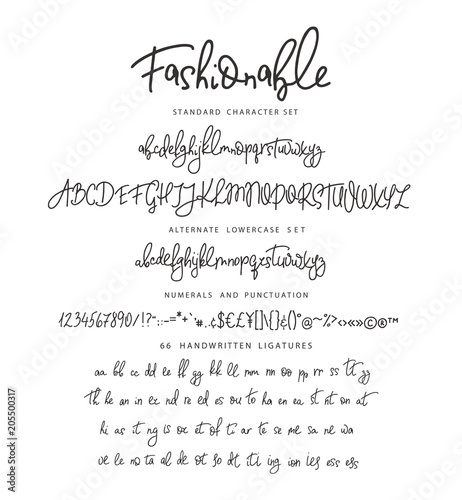 Fashionable
STANDARD CHARACTER SET
abcdefghijklmnopqrstuvwxyz
ABCDEFGHIJKLMNOPQRSTUVWXYZ
ALTERNATE LOWERCASE SET
abcdefghijklmnopqrstuvwxyz
NUMERALS AND PUNCTUATION
1234567890/!?
$€£¥[]{}&()°@~%?‹›«»©®™
66 HANDWRITTEN LIGATURES
aa bb cc dd ee ff gg kk ll mm nn oo pp rr ss tt zz
th he an in er nd re ed es ou to ha en ea st nt on at
hi as it ng is or et of ti ar te se me sa ne wa
ve le no ta al de ot so dt ti ing ion ies ess
Adobe Stock | #205500317